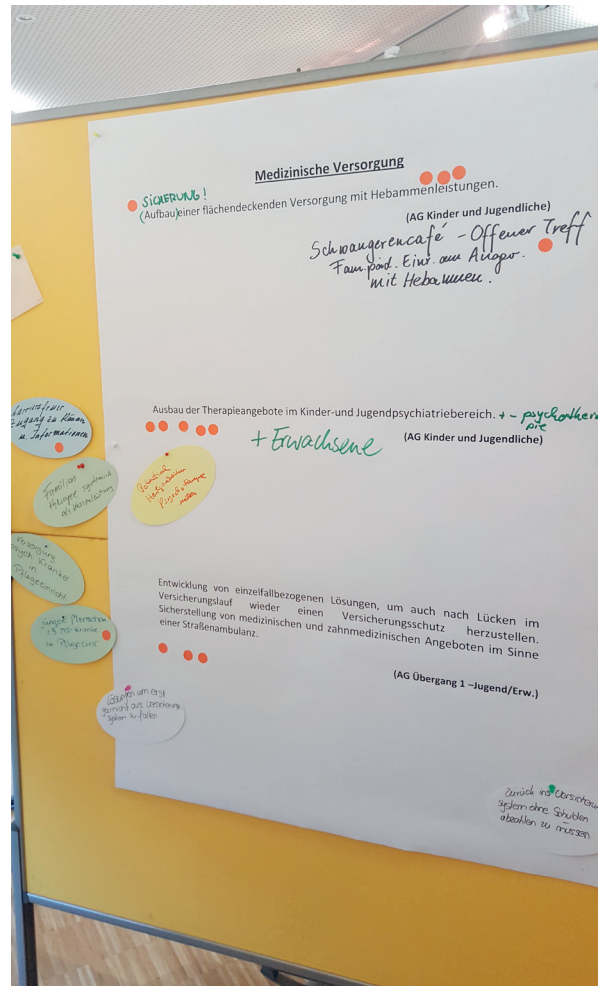 Medizinische Versorgung
SICHERUNG!
(Aufbau) einer flächendeckenden Versorgung mit Hebammenleistungen.
(AG Kinder und Jugendliche)
Schwangerencafé - Offener Treff
Fam.päd. Einr. am Anspr.
mit Hebammen.
Ausbau der Therapieangebote im Kinder-und Jugendpsychiatriebereich. + - psychothera
pie
+ Erwachsene
(AG Kinder und Jugendliche)
barrierefreier
Zugang zu Räumen
u. Informationen
Familien
therapie systemische
als Kassenleistung
Heilpraktiker
Psychotherapie
Versorgung
psych Kranker
in
Pflegeeinricht
Junge Menschen
z.B MS-Kranke
in Pflegeeinr
Entwicklung von einzelfallbezogenen Lösungen, um auch nach Lücken im
Versicherungslauf wieder einen Versicherungsschutz herzustellen.
Sicherstellung von medizinischen und zahnmedizinischen Angeboten im Sinne
einer Straßenambulanz.
(AG Übergang 1 –Jugend/Erw.)
Lösungen um erst
garnicht aus Versicherungs
system zu fallen
Zurück ins Versicheru
system ohne Schulden
abzahlen zu müssen